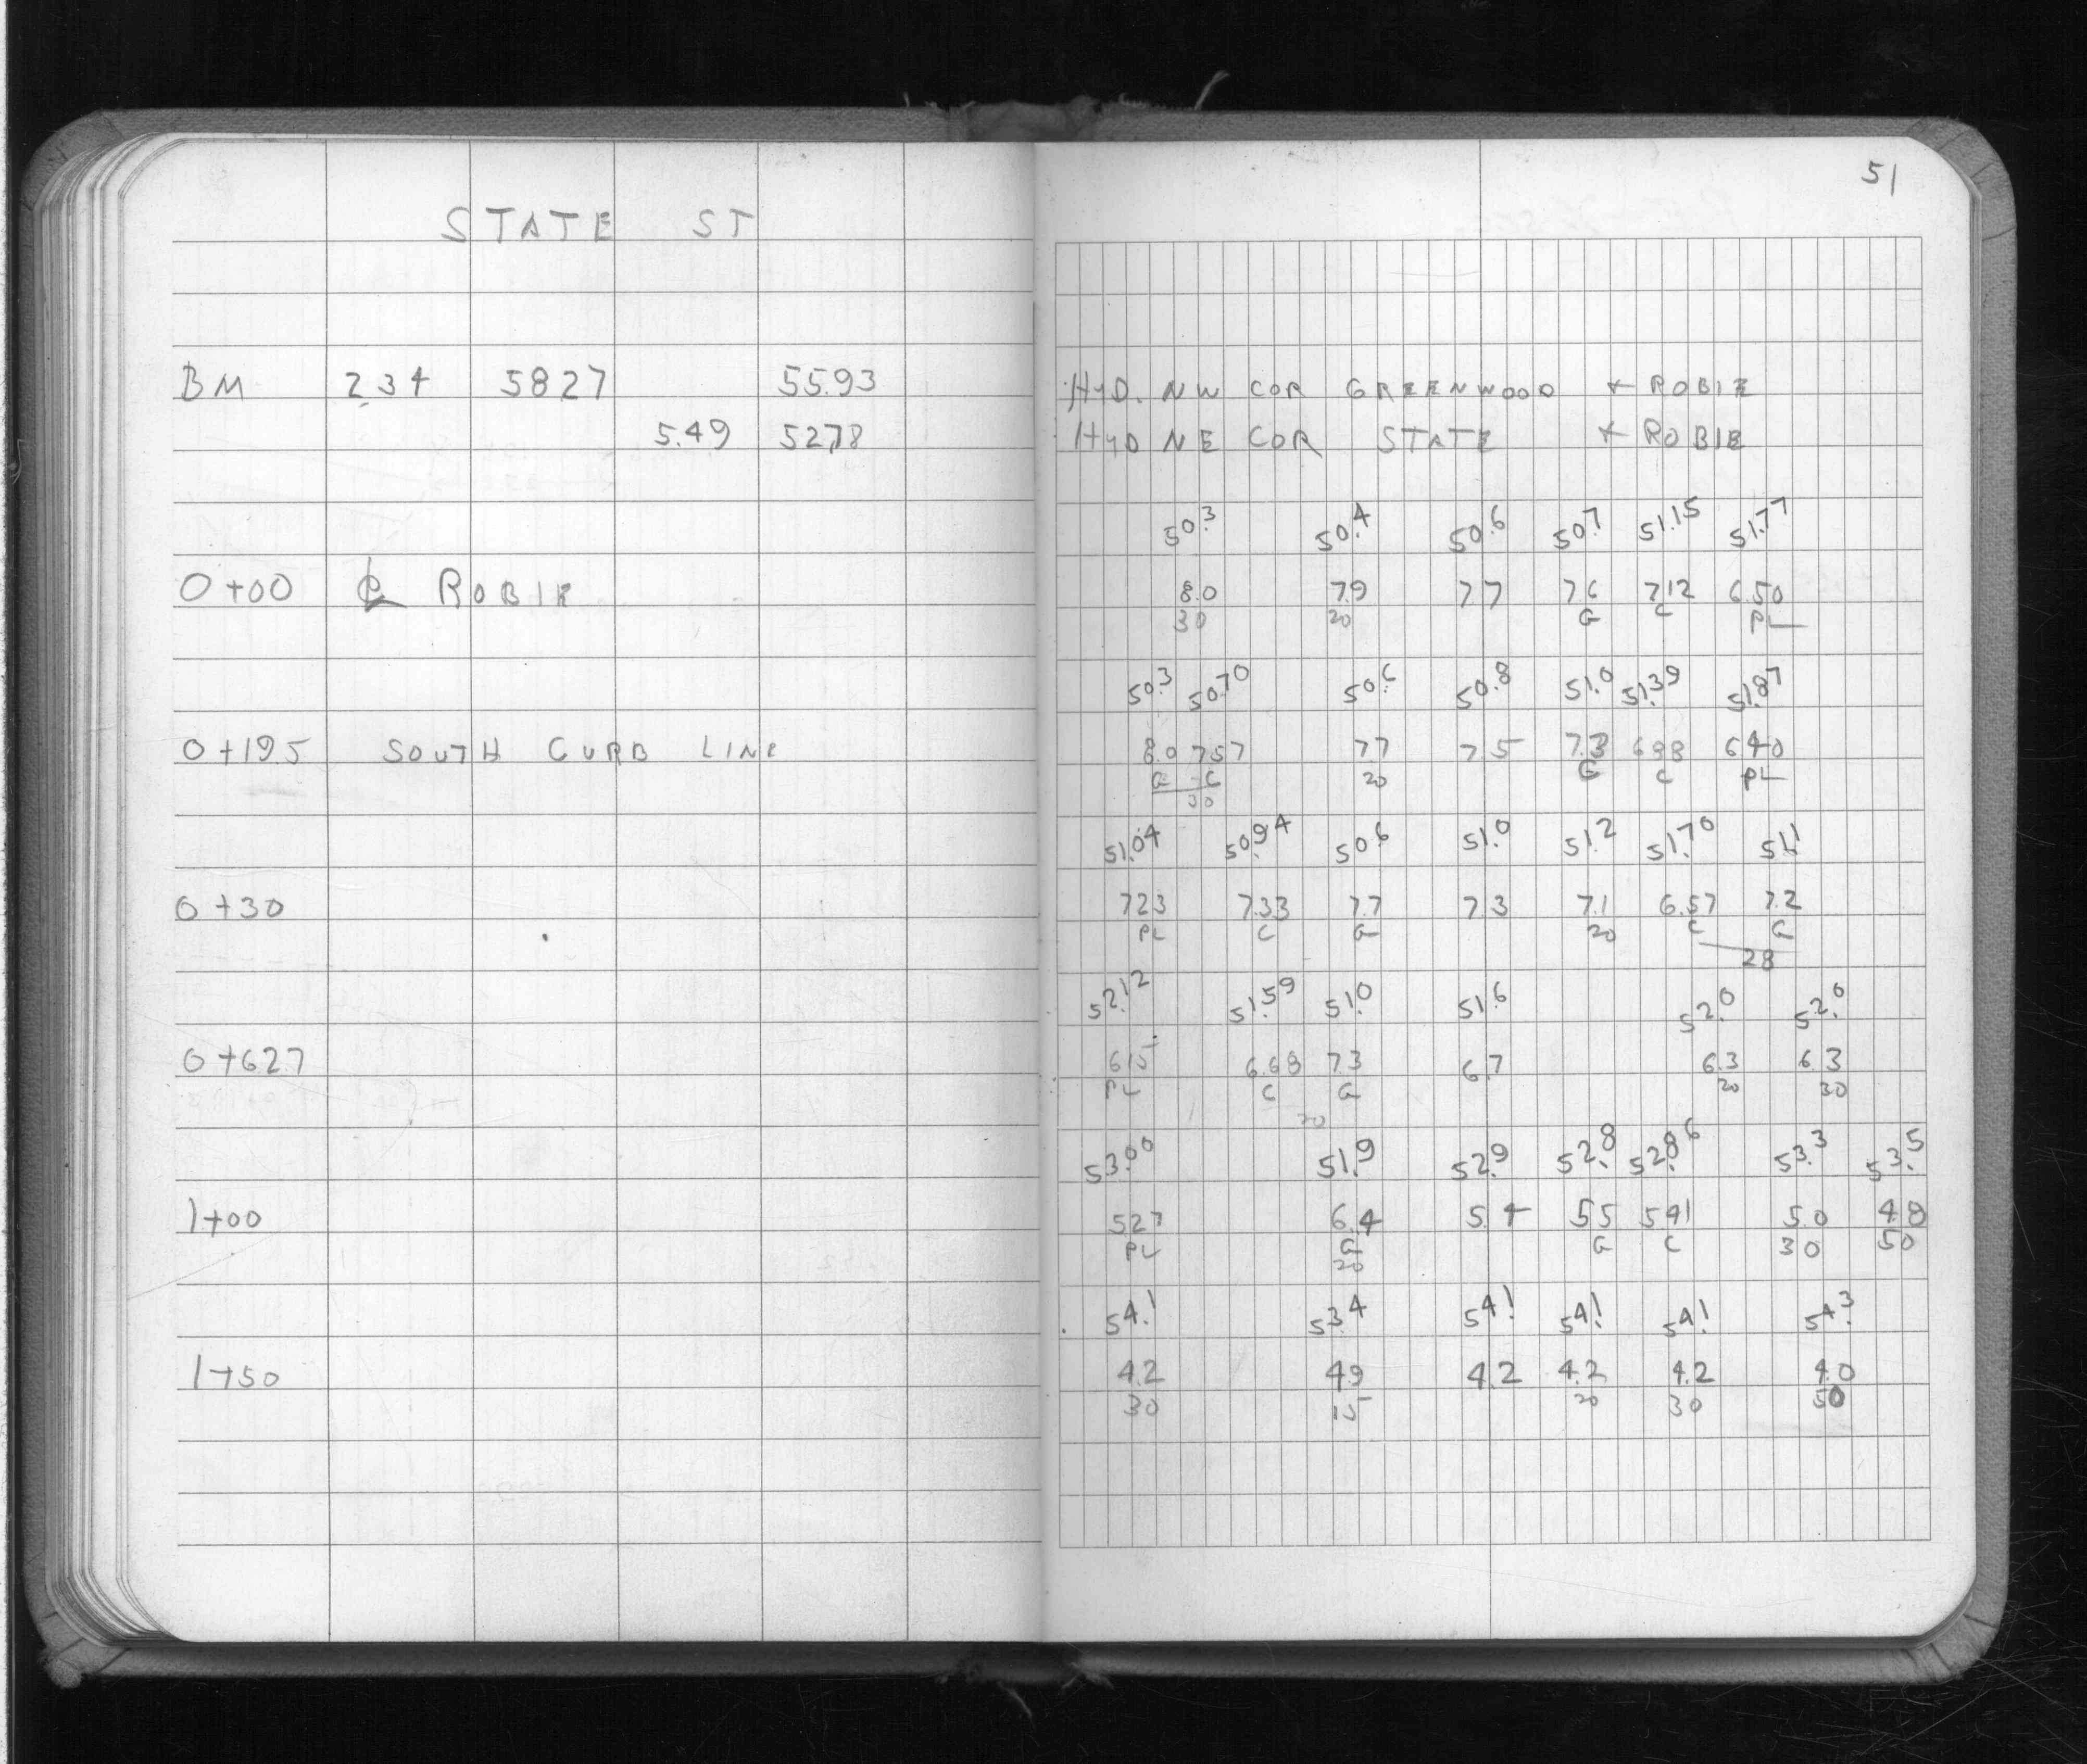 51
STATE ST
BM 2.34 58.27 55.93 HYD. NW COR GREENWOOD + ROBIE
5.49 52.78 HYD NE COR STATE + ROBIE
50.3 50.4 50.6 50.7 51.15 51.77
0+00 ℄ ROBIE 8.0 7.9 7.7 7.6 7.12 6.50
30 20 G C PL
50.3 50.70 50.6 50.8 51.0 51.39 51.87
0+19.5 SOUTH CURB LINE 8.0 7.57 7.7 7.5 7.3 6.88 6.40
G C 20 G C PL
30
51.04 50.94 50.6 51.0 51.2 51.70 51.1
0+30 7.23 7.33 7.7 7.3 7.1 6.57 7.2
PL C G 20 C G
28
52.12 51.59 51.0 51.6 52.0 52.0
0+62.7 6.15 6.68 7.3 6.7 6.3 6.3
PL C G 20 30
20
53.00 51.9 52.9 52.8 52.86 53.3 53.5
1+00 5.27 6.4 5.4 5.5 5.41 5.0 4.8
PL G G C 30 50
20
54.1 53.4 54.1 54.1 54.1 54.3
1+50 4.2 4.9 4.2 4.2 4.2 4.0
30 15 20 30 50